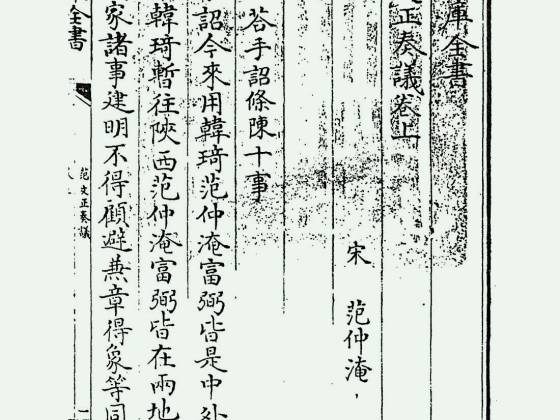 庫全書
正奏議卷上
宋 范仲淹
荅手詔條陳十事
詔今來用韓琦范仲淹富弼皆是中外
韓琦暫往陝西范仲淹富弼皆在兩地
家諸事建明不得顧避兼章得象等同
全書
范文正奏議